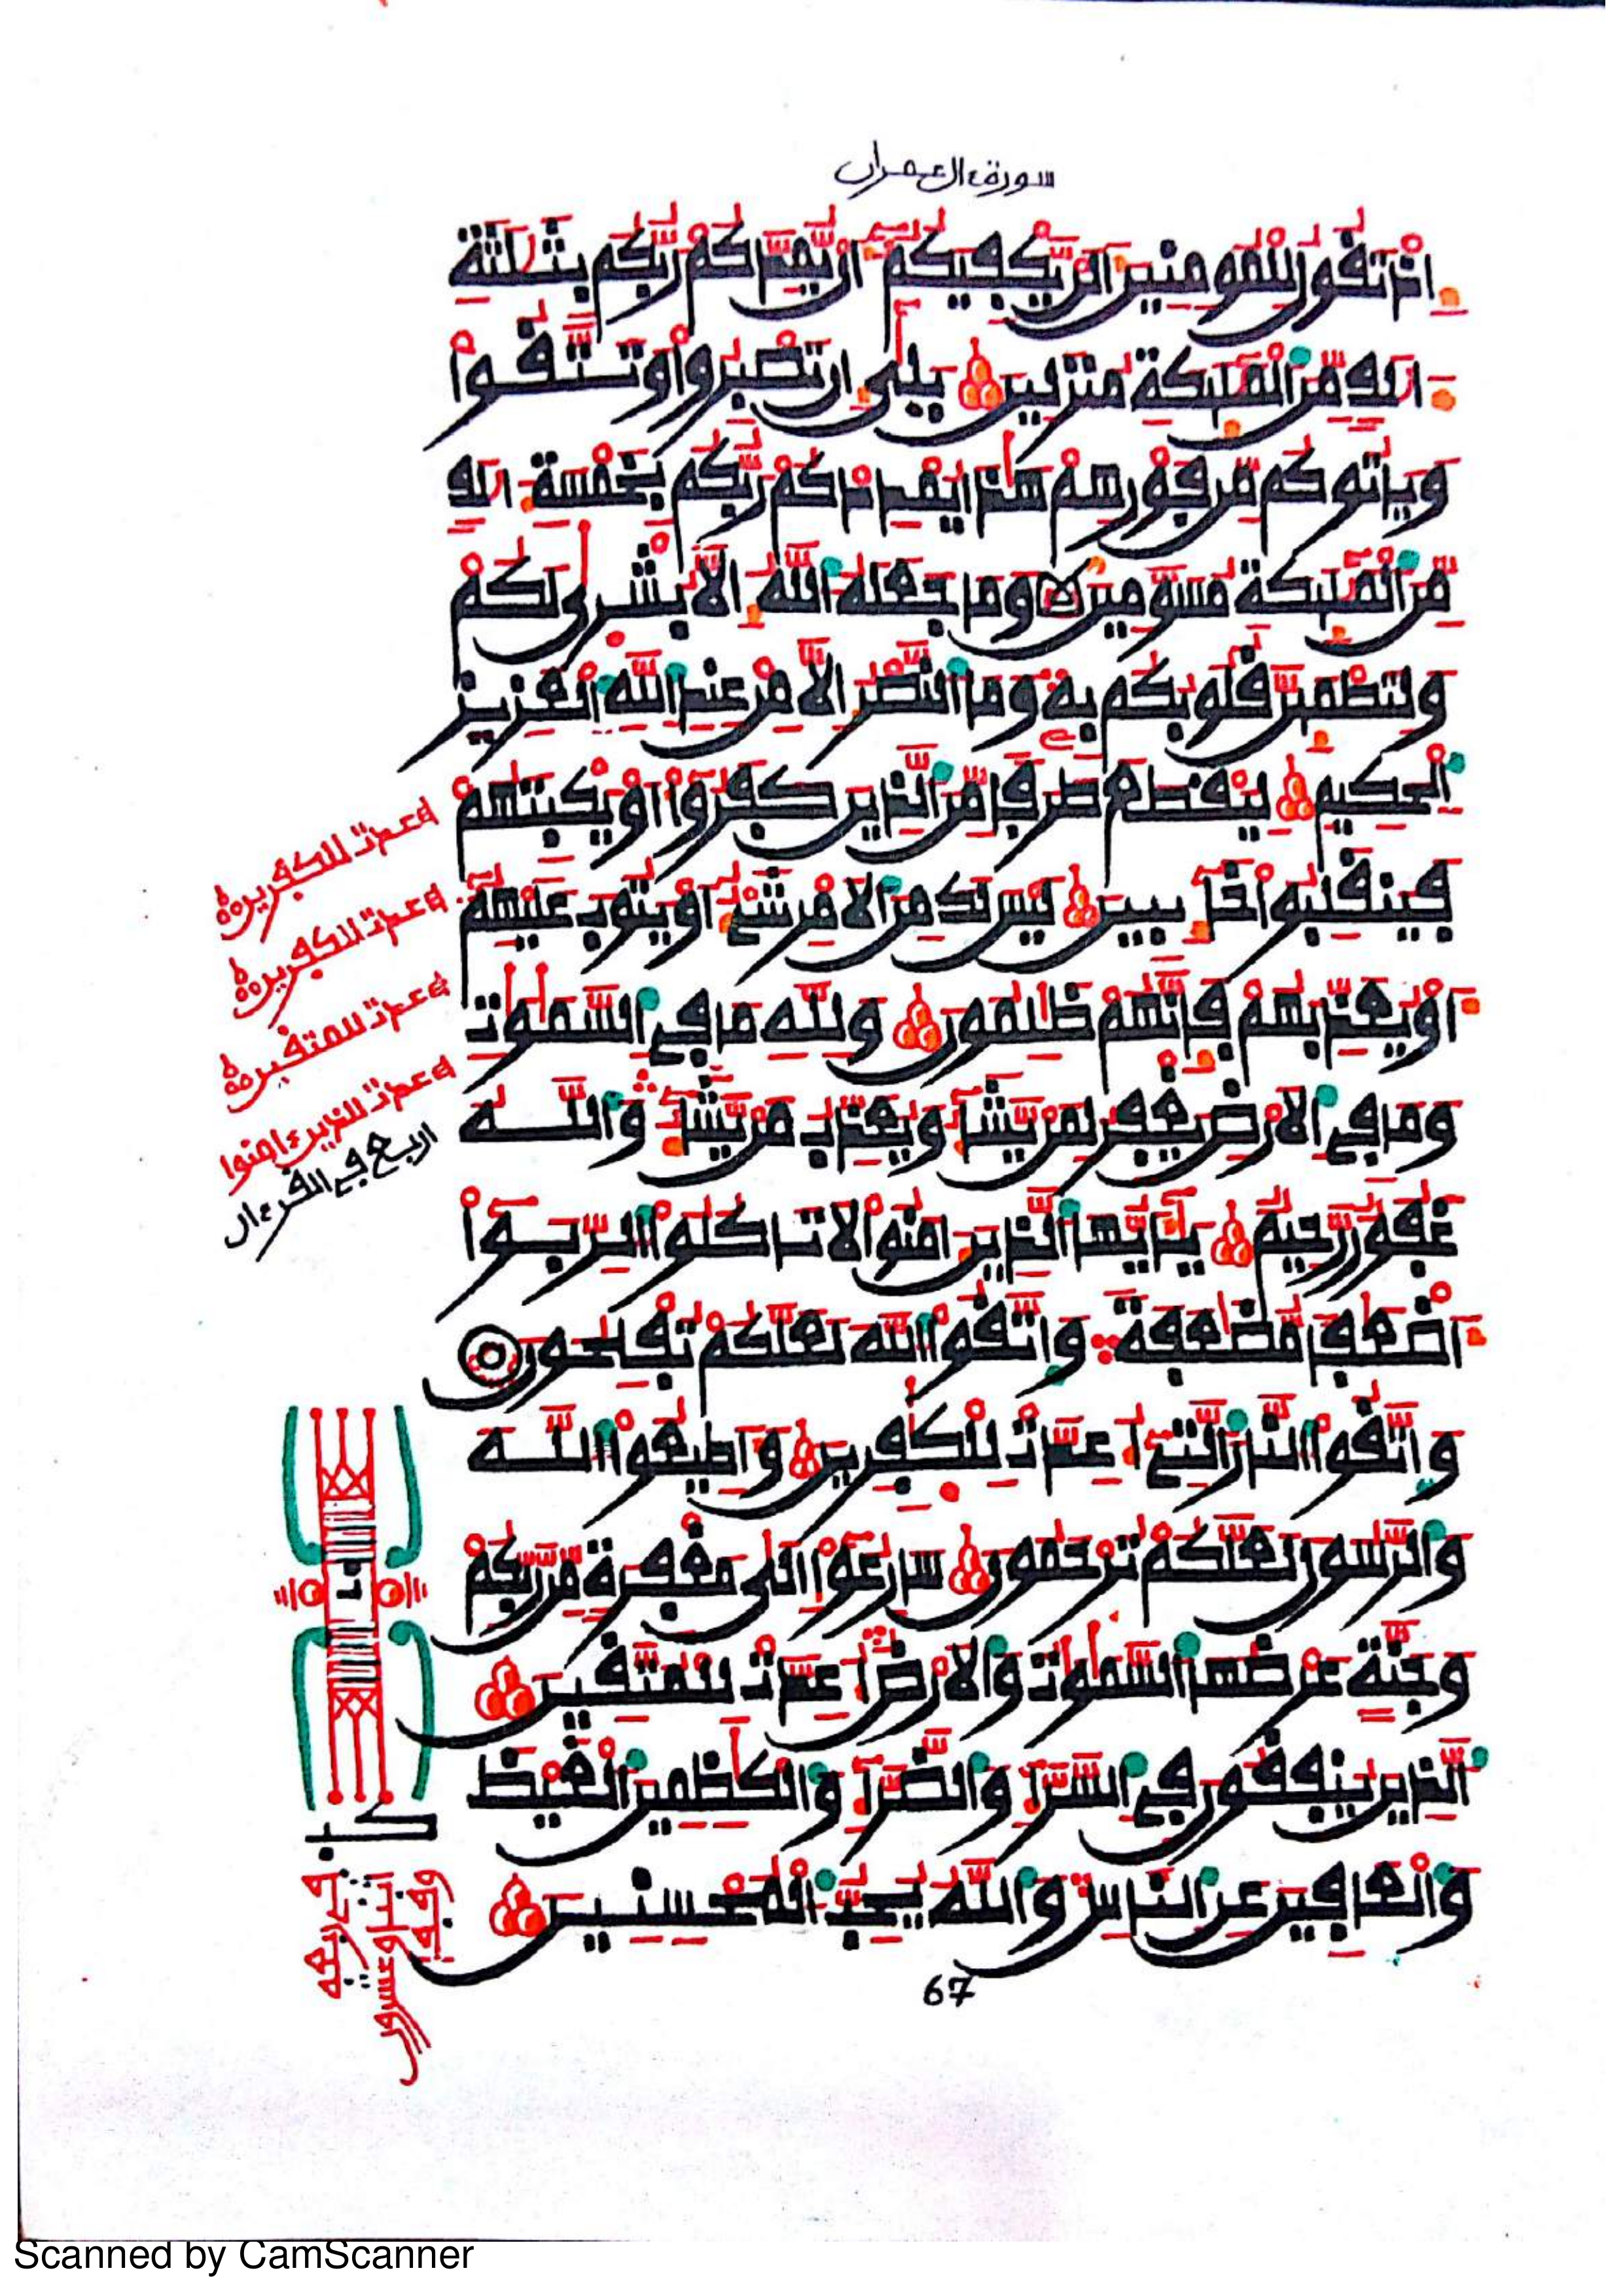 سورة ءال عمران
اذ تقول للمومنين الن يكفيكم ان يمدكم ربكم بثلثة
الف من الملئكة منزلين بلى ان تصبروا وتتقوا
وياتوكم من فورهم هذا يمددكم ربكم بخمسة الف
من الملئكة مسومين وما جعله الله الا بشرى لكم
ولتطمئن قلوبكم به وما النصر الا من عند الله العزيز
الحكيم ليقطع طرفا من الذين كفروا او يكبتهم
فينقلبوا خائبين ليس لك من الامر شيء او يتوب عليهم
او يعذبهم فانهم ظلمون ولله ما في السموت
وما في الارض يغفر لمن يشا ويعذب من يشا والله
غفور رحيم يايها الذين امنوا لا تاكلوا الربوا
اضعفا مضعفة واتقوا الله لعلكم تفلحون
واتقوا النار التي اعدت للكفرين واطيعوا الله
والرسول لعلكم ترحمون سارعوا الى مغفرة من ربكم
وجنة عرضها السموت والارض اعدت للمتقين
الذين ينفقون في السرا والضرا والكظمين الغيظ
والعافين عن الناس والله يحب المحسنين
67
اعدت للكفرين
اعدت للكفرين
اعدت للمتقين
اعدت للذين ءامنوا
اربع في القرءان
Scanned by CamScanner